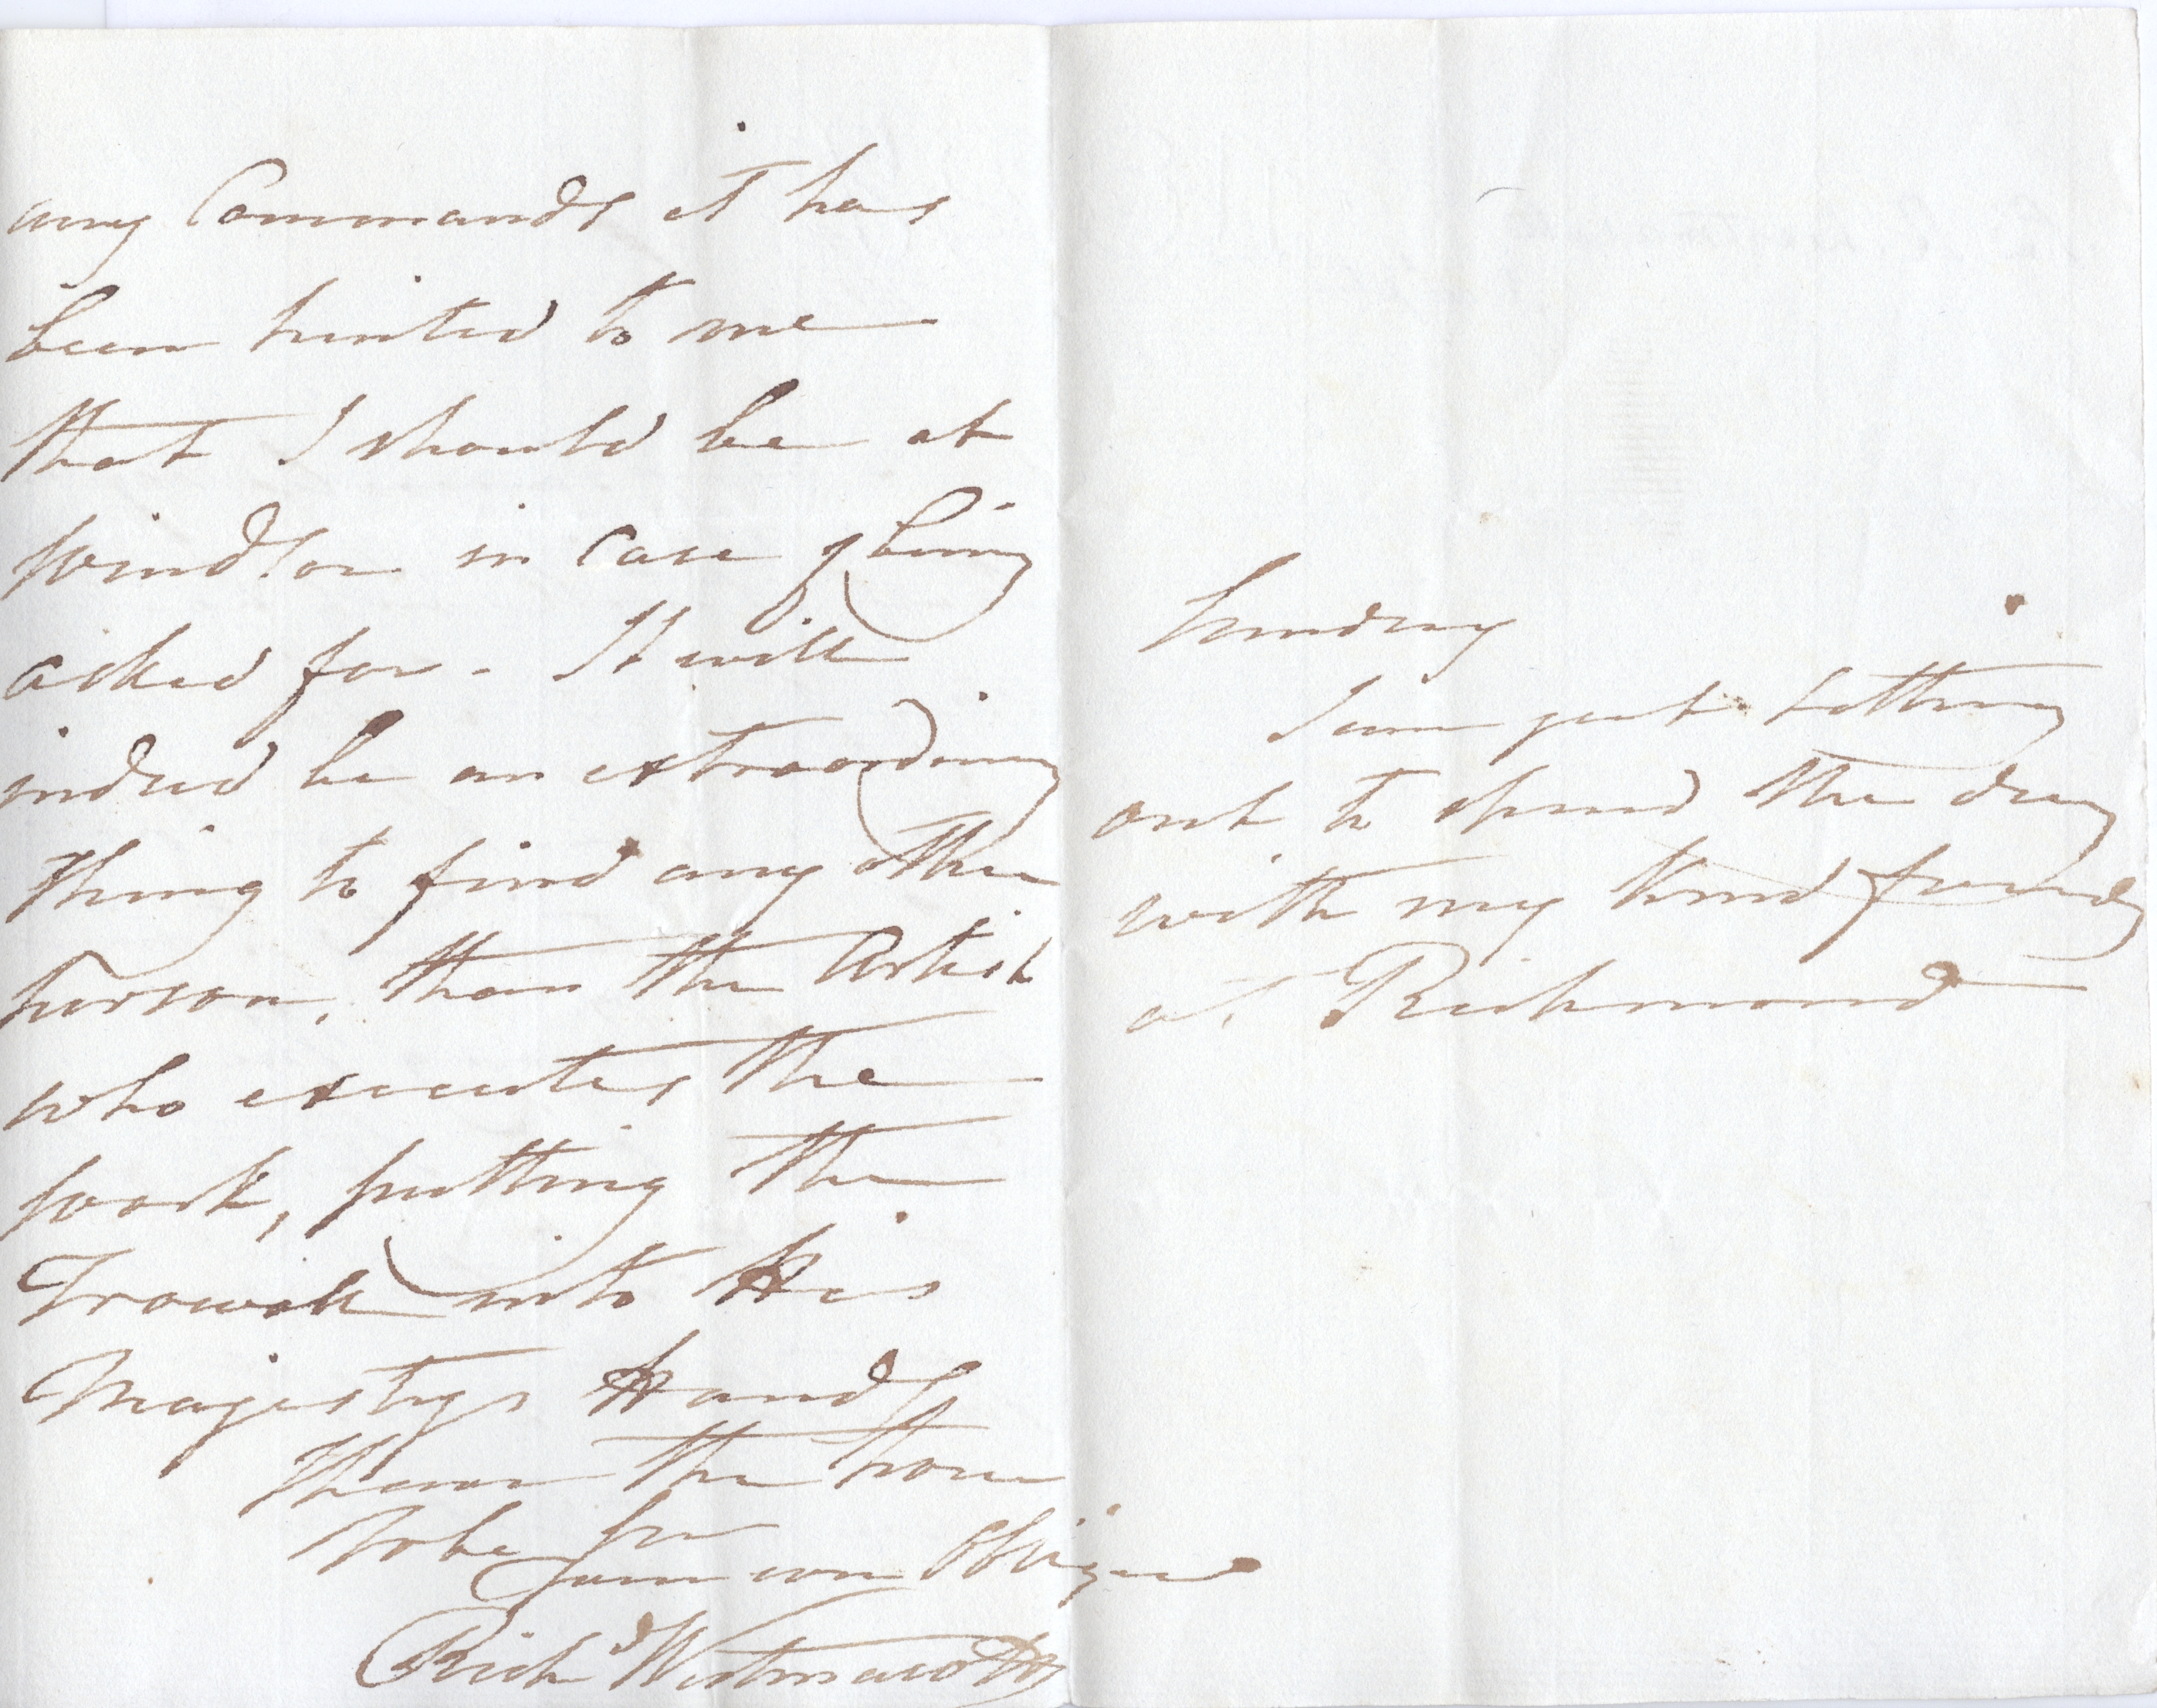 any Commands it has
been hinted to me
that I should be at
Windsor in Case of being
asked for - It will
indeed be an extraordinary
thing to find any other
person, than the Artist
who executes the
work, putting the
Trowell into His
Majestys Hands
I have the honor
to be Sir
Your very Obliged
Rich.d Westmacott
Sunday
I am just setting
out to spend the day
with my kind friends
at Richmond